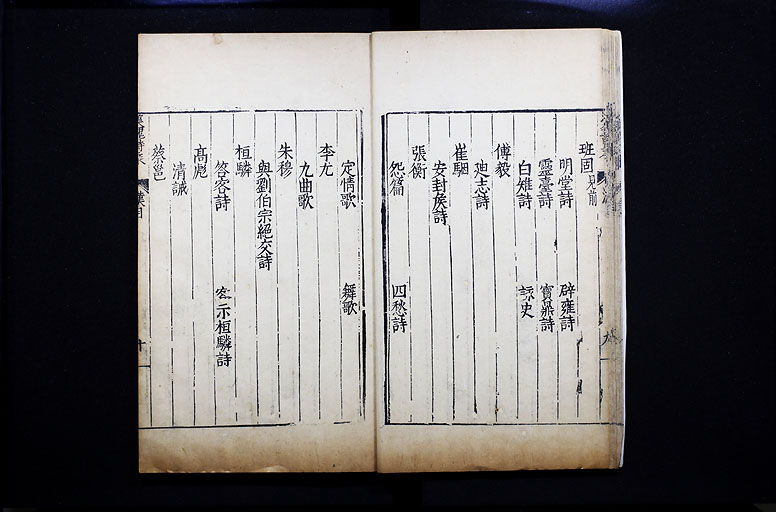 班固見前
明堂詩 辟雍詩
靈臺詩 寶鼎詩
白雉詩 詠史
傅毅
廸志詩
崔駰
安封侯詩
張衡
怨篇 四愁詩
定情歌 舞歌
李尤
九曲歌
朱穆
與劉伯宗絕交詩
桓驎
答客詩 客示桓驎詩
高彪
清誡
蔡邕
漢目
十